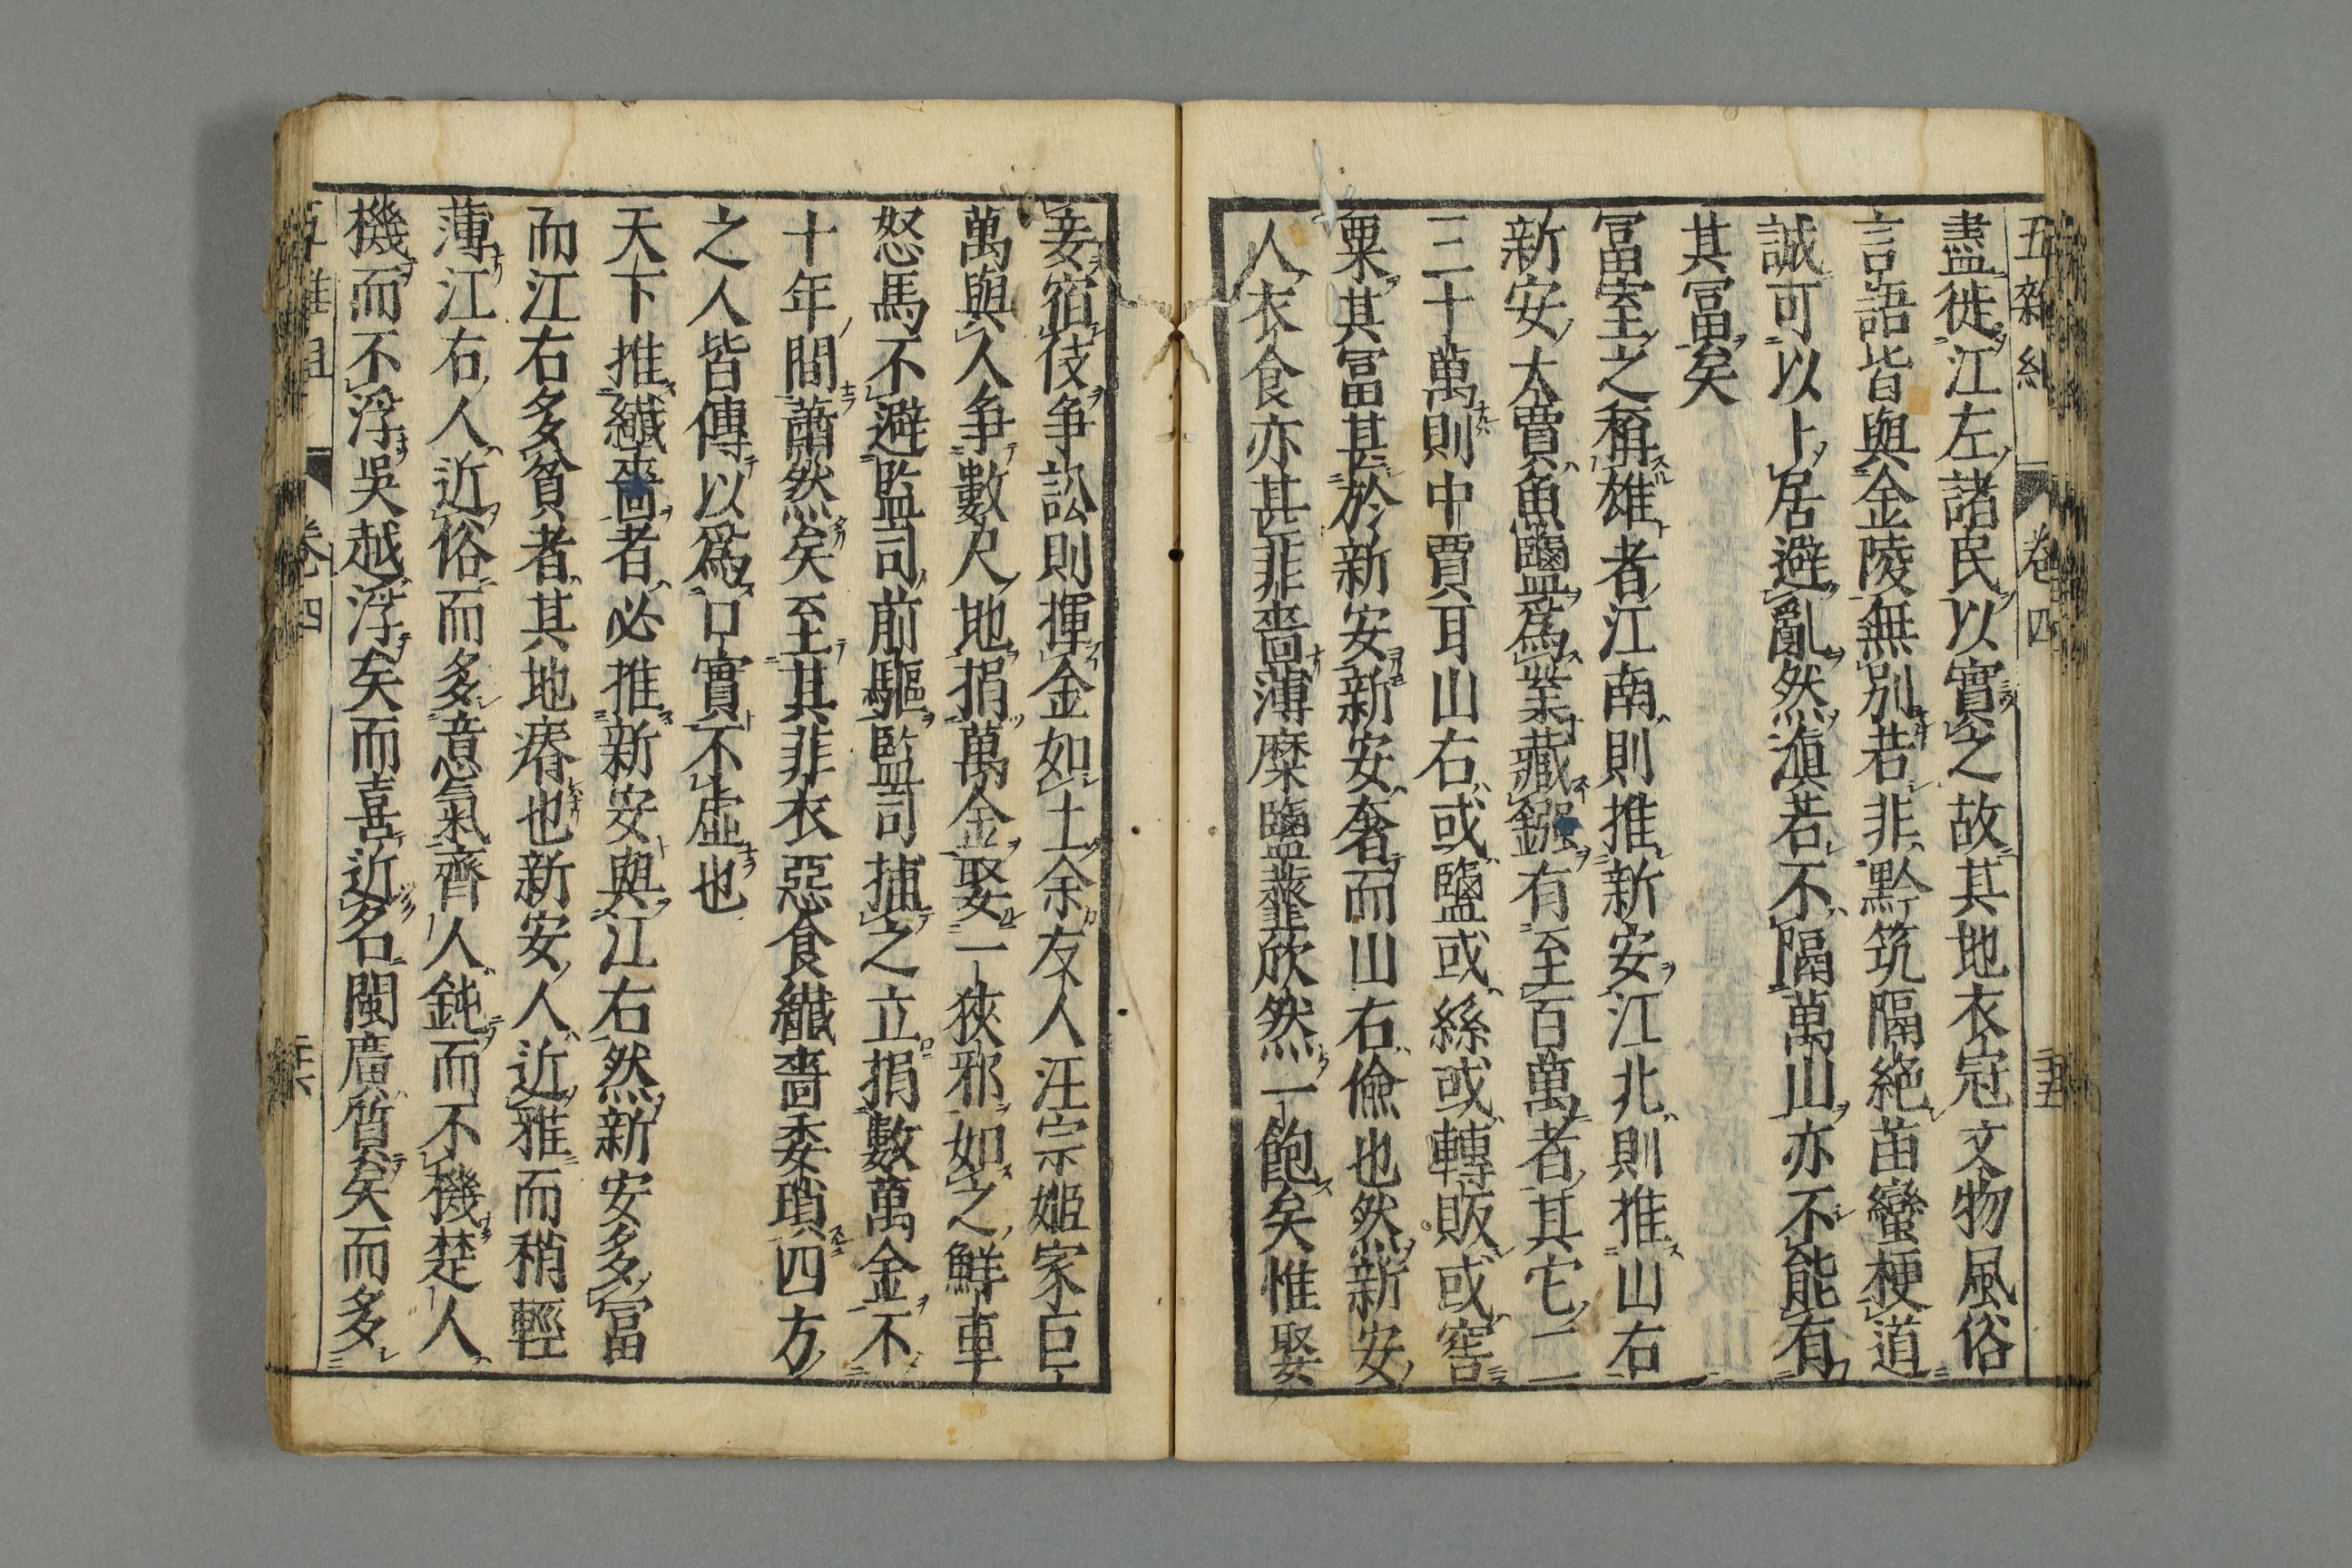 五雜組 卷四 三十五
盡徙江左諸民以實之故其地衣冠文物風俗
言語皆與金陵無別若非黔筑隔絶苗蠻梗道
誠可以卜居避亂然滇若不隔萬山亦不能有
其冨矣
冨室之稱雄者江南則推新安江北則推山右
新安大賈魚鹽爲業藏鏹有至百萬者其它二
三十萬則中賈耳山右或鹽或絲或轉販或窖
粟其冨甚於新安新安奢而山右儉也然新安
人衣食亦甚菲嗇薄糜鹽虀欣然一飽矣惟娶
妾宿伎爭訟則揮金如土余友人汪宗姬家巨
萬與人爭數尺地捐萬金娶一狹邪如之鮮車
怒馬不避監司前驅監司捕之立捐數萬金不
十年間蕭然矣至其菲衣惡食纎嗇委瑣四方
之人皆傳以爲口實不虛也
天下推纎嗇者必推新安與江右然新安多冨
而江右多貧者其地瘠也新安人近雅而稍輕
薄江右人近俗而多意氣齊人鈍而不機楚人
機而不浮吳越浮矣而喜近名閩廣質矣而多
卷四